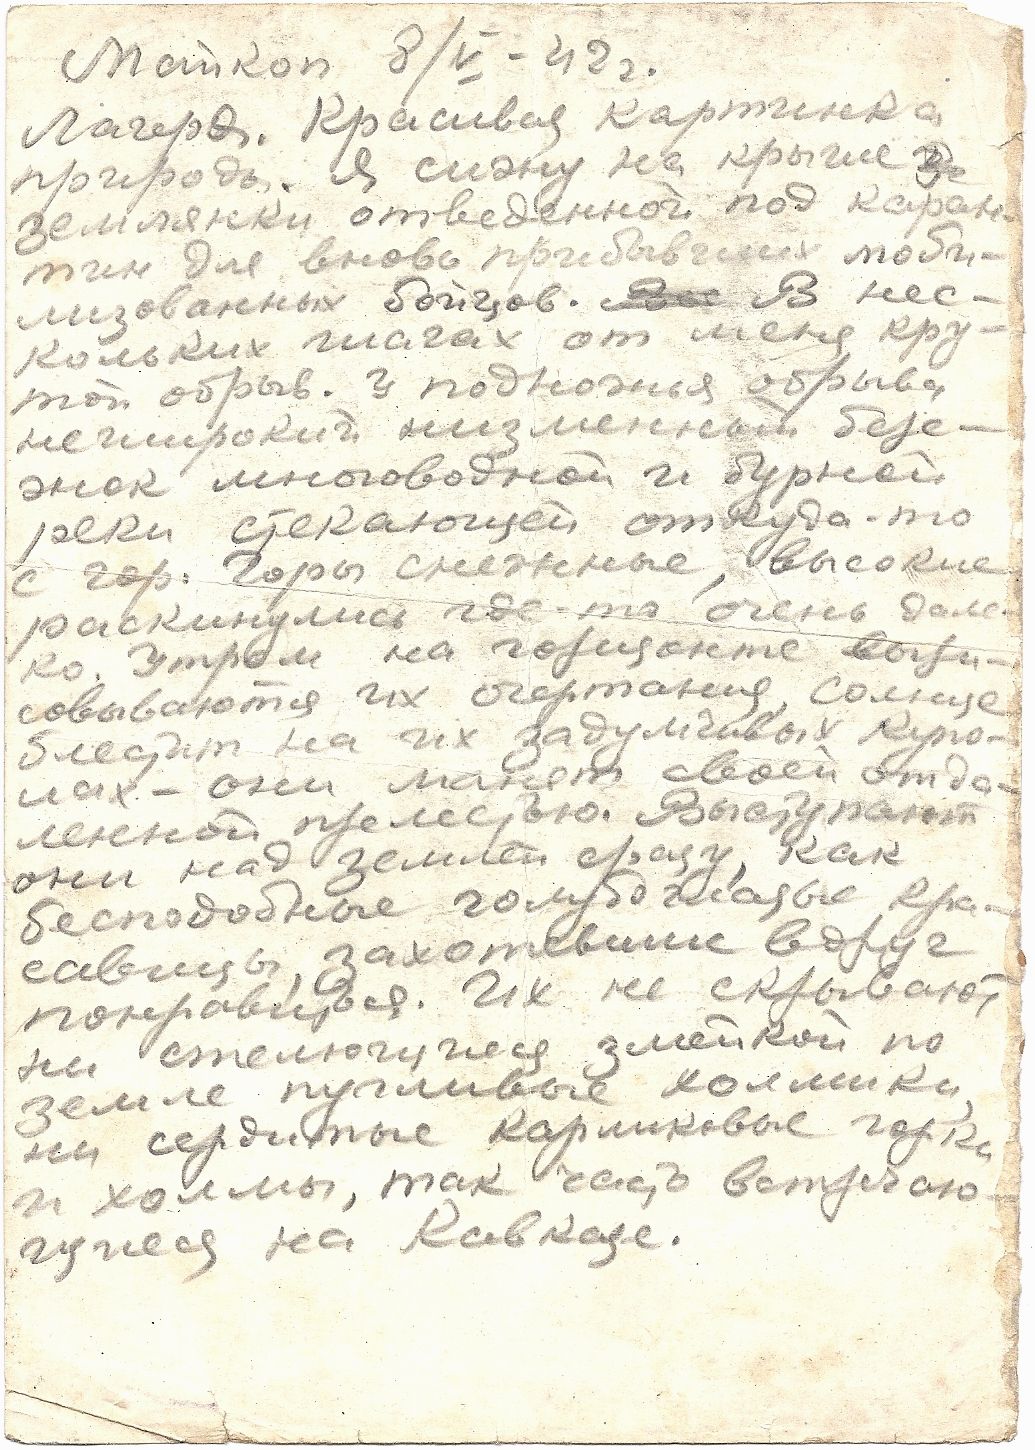 Майкоп 8/V - 42 г.
Лагеря. Красивая картинка
природы. Я сижу на крыше
землянки отведенной под каран-
тин для вновь прибывших моби-
лизованных бойцов. В нес-
кольких шагах от меня кру-
той обрыв. У подножья обрыва
неширокий низменный бере-
жок многоводной и бурной
реки стекающей откуда-то
с гор. Горы снежные, высокие
раскинулись где-то очень дале-
ко. Утром на горизонте выри-
совываются их очертания, солнце
блестит на их задумчивых купо-
лах - они манят своей отда-
ленной прелестью. Выступают
они над землей сразу, как
бесподобные голубоглазые кра-
савицы, захотевшие вдруг
понравиться. Их не скрывают
ни стелющиеся змейкой по
земле пугливые холмики,
ни сердитые карликовые горки
и холмы, так часто встречаю-
щиеся на Кавказе.